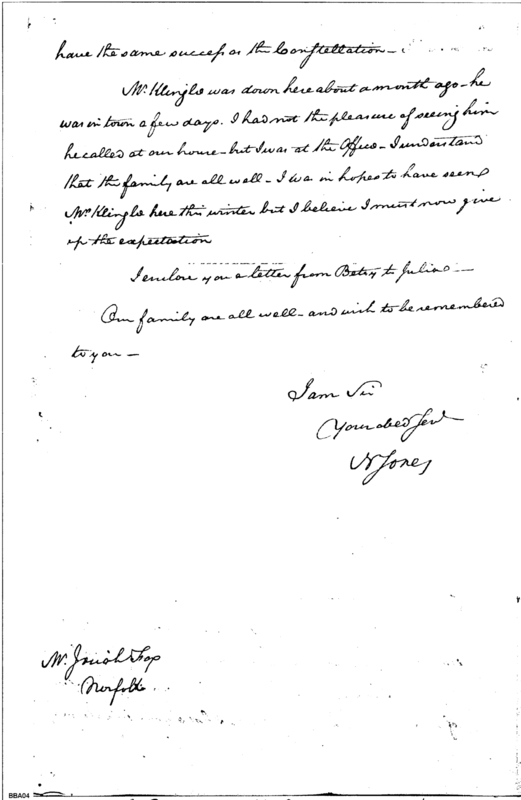 have the same success as the Constellation —
Mr. Klingle was down here about a month ago - he
was in town a few days. I had not the pleasure of seeing him
he called at our house - but I was at the Office - I understand
that the family are all well - I was in hopes to have seen
Mrs. Klingle here this winter but I believe I must now give
up the expectation
I enclose you a letter from Betsy to Julia —
Our family are all well - and wish to be remembered
to you —
I am Sir
Your obed Servt
Jones
Mr. Josiah Fox
Norfolk
BBA04